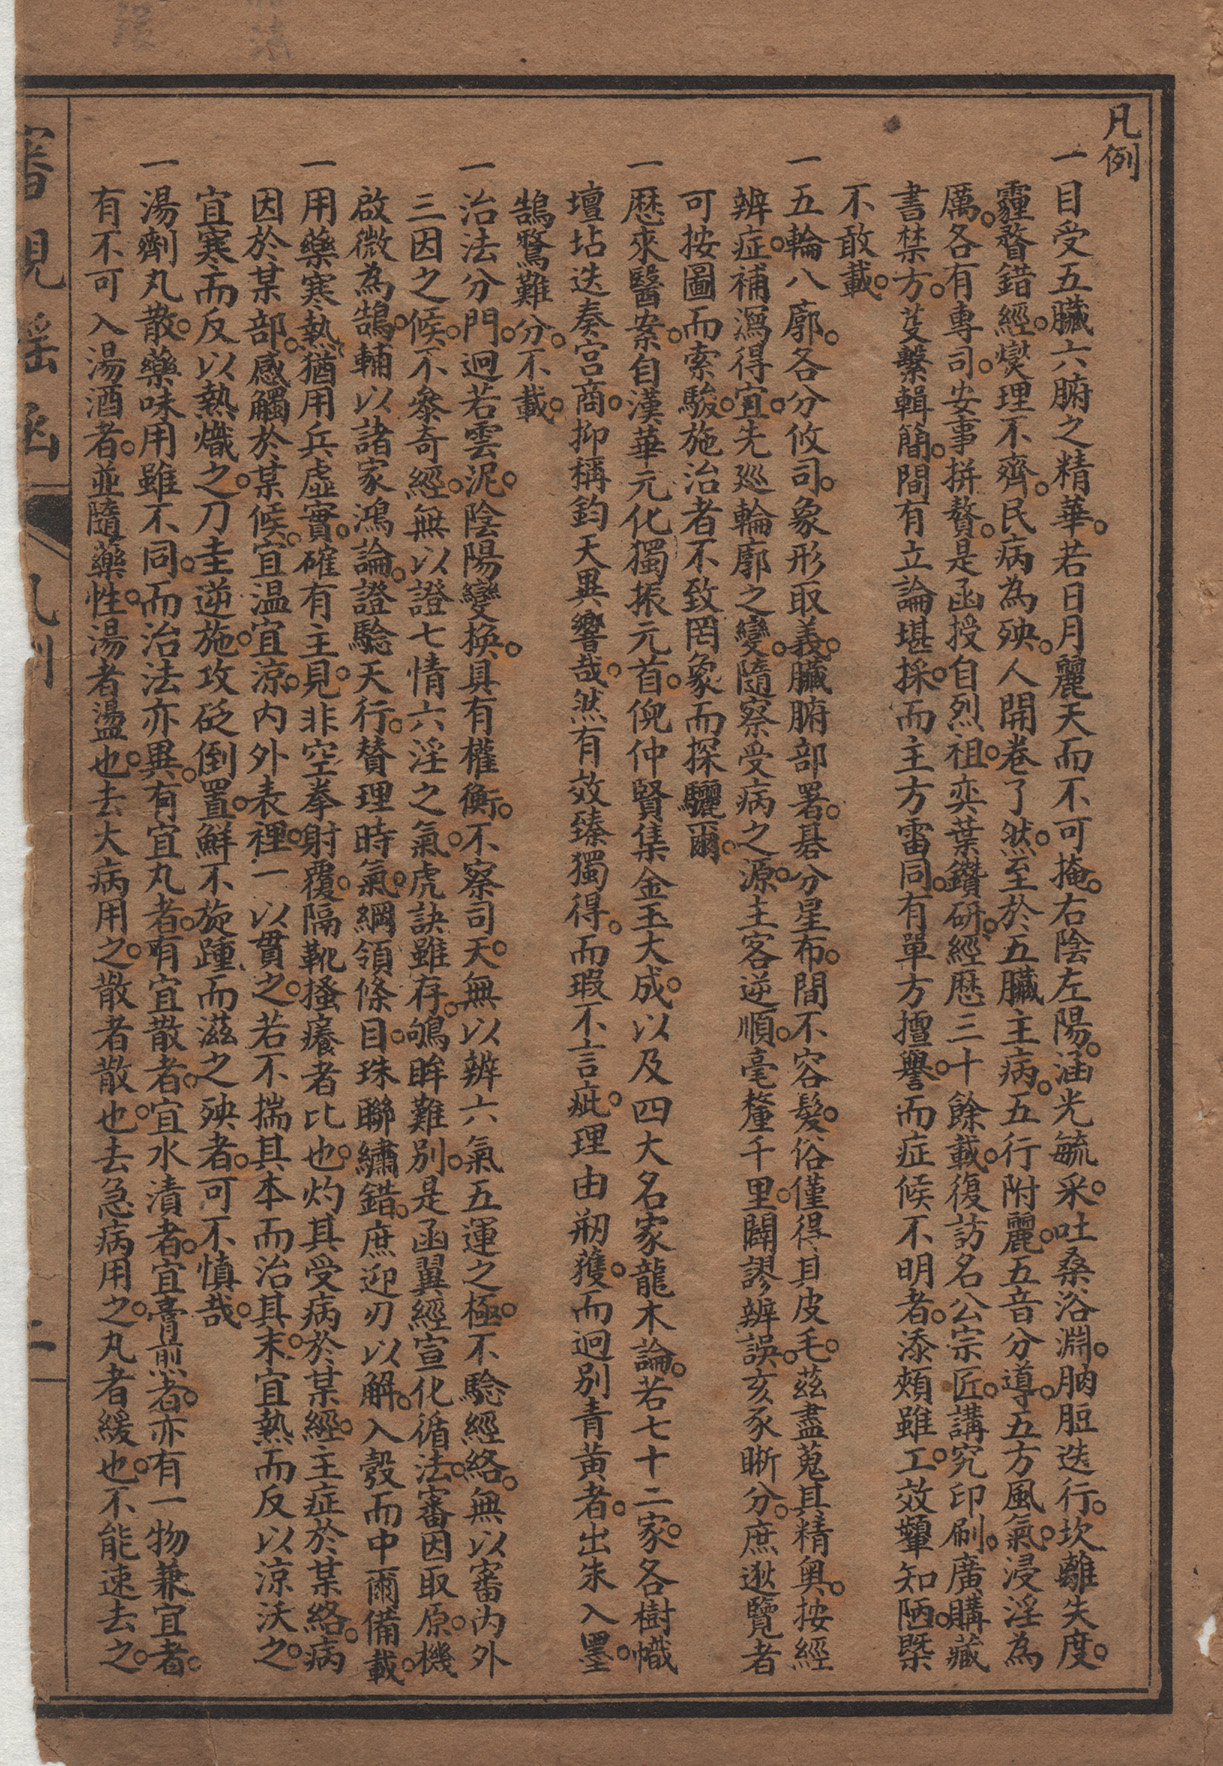 凡例
一目受五臟六腑之精華。若日月麗天而不可掩。右陰左陽。涵光毓采。吐桑浴淵。朒脰迭行。坎離失度。
霾瞀錯經。燮理不齊。民病為殃。人開卷了然。至於五臟主病。五行附麗。五音分導。五方風氣。浸淫為
厲。各有專司。安事拼贅。是函授自烈祖。奕葉鑽研。經歷三十餘載。復訪名公宗匠。講究印刷。廣購藏
書禁方。芟繫輯簡。間有立論堪採。而主方雷同。有單方擅譽。而症候不明者。添頰雖工。效顰知陋。槩
不敢載。
一五輪八廓。各分攸司。象形取義。臟腑部署。碁分星布。間不容髮。俗僅得其皮毛。茲盡蒐其精奥。按經
辨症。補瀉得宜。先廵輪廓之變。隨察受病之源。主客逆順。毫釐千里。闢謬辨誤。亥豕晰分。庶逖覽者
可按圖而索駿。施治者不致罔象而探驪爾。
一歷來醫案。自漢華元化獨振元首。倪仲賢集金玉大成。以及四大名家龍木論。若七十二家。各樹幟
壇坫。迭奏宮商。抑稱鈞天異響哉。然有效臻獨得。而瑕不言疵。理由刱獲。而迥別青黃者。出朱入墨。
鵠鶩難分。不載。
一治法分門。迥若雲泥。陰陽變換。具有權衡。不察司天。無以辨六氣五運之極。不驗經絡。無以審內外
三因之候。不參奇經。無以證七情六淫之氣。虎訣雖存。鴝眸難別。是函翼經宣化。循法審因。取原機
啟微為鵠。輔以諸家鴻論。證驗天行。贊理時氣。綱領條目。珠聯繡錯。庶迎刃以解。入彀而中爾。備載。
一用藥寒熱。猶用兵虛實。確有主見。非空拳射覆。隔靴搔癢者比也。灼其受病於某經。主症於某絡。病
因於某部。感觸於某候。宜温宜涼。內外表裡。一以貫之。若不揣其本而治其末。宜熱而反以涼沃之。
宜寒而反以熱熾之。刀圭逆施。攻砭倒置。鮮不旋踵而滋之殃者。可不慎哉。
一湯劑丸散。藥味用雖不同。而治法亦異。有宜丸者。有宜散者。宜水漬者。宜膏煎者。亦有一物兼宜者。
有不可入湯酒者。並隨藥性。湯者盪也。去大病用之。散者散也。去急病用之。丸者緩也。不能速去之。